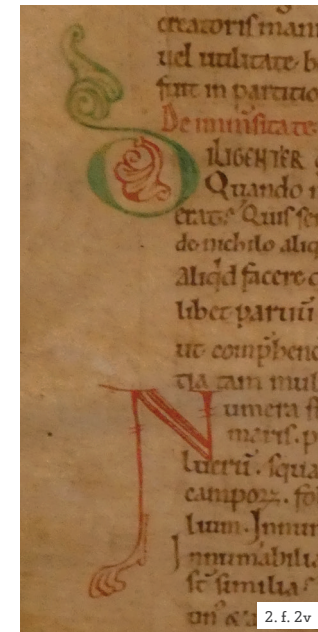 creatoris man
uel utilitate. b
fuit in partitio
De inuisitate
DILIGENTER
Quando
erate Quis se
de nichilo aliq
Aliqd facere
libet partiū
ut compħenc
tia tam mul
Numera
meris. p
luerū. squa
camporꝝ. fo
lium. Innu
Innumabilia
sc̄ similia
2. f. 2v